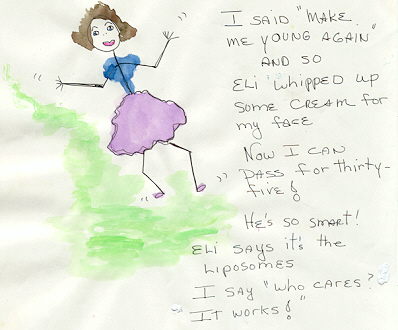 I SAID "MAKE
ME YOUNG AGAIN"
AND SO
ELI WHIPPED UP
SOME CREAM FOR
MY FACE
NOW I CAN
PASS FOR THIRTY-
FIVE!
HE'S SO SMART!
ELI SAYS IT'S THE
LIPOSOMES
I SAY "WHO CARES?
IT WORKS!"